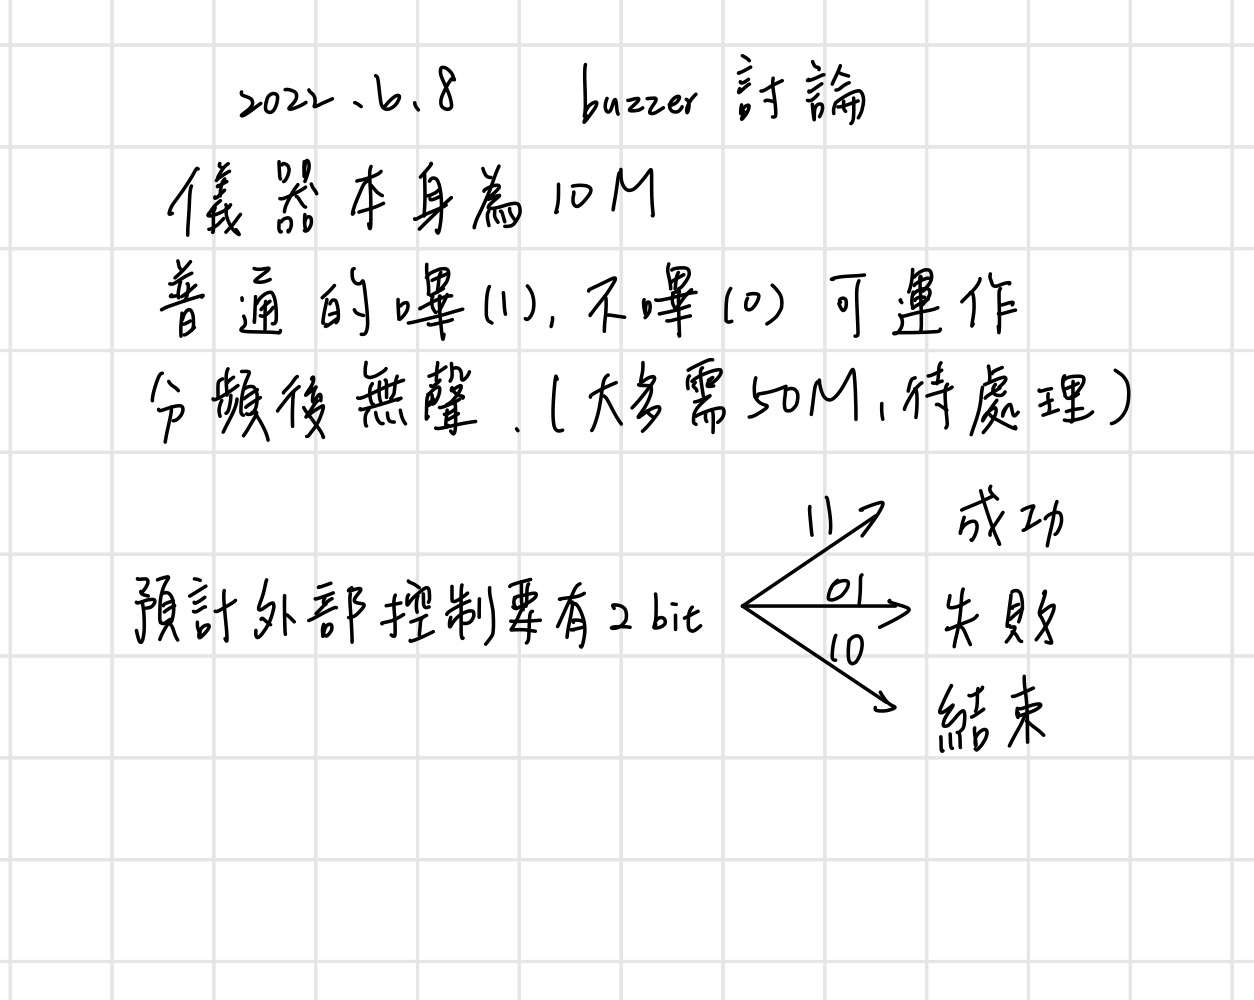 2022.6.8 buzzer 討論
儀器本身為10M
普通的嗶(1),不嗶(0)可運作
分頻後無聲.(大多需50M,待處理)
11 成功
預計外部控制要有2bit 01 失敗
10 結束